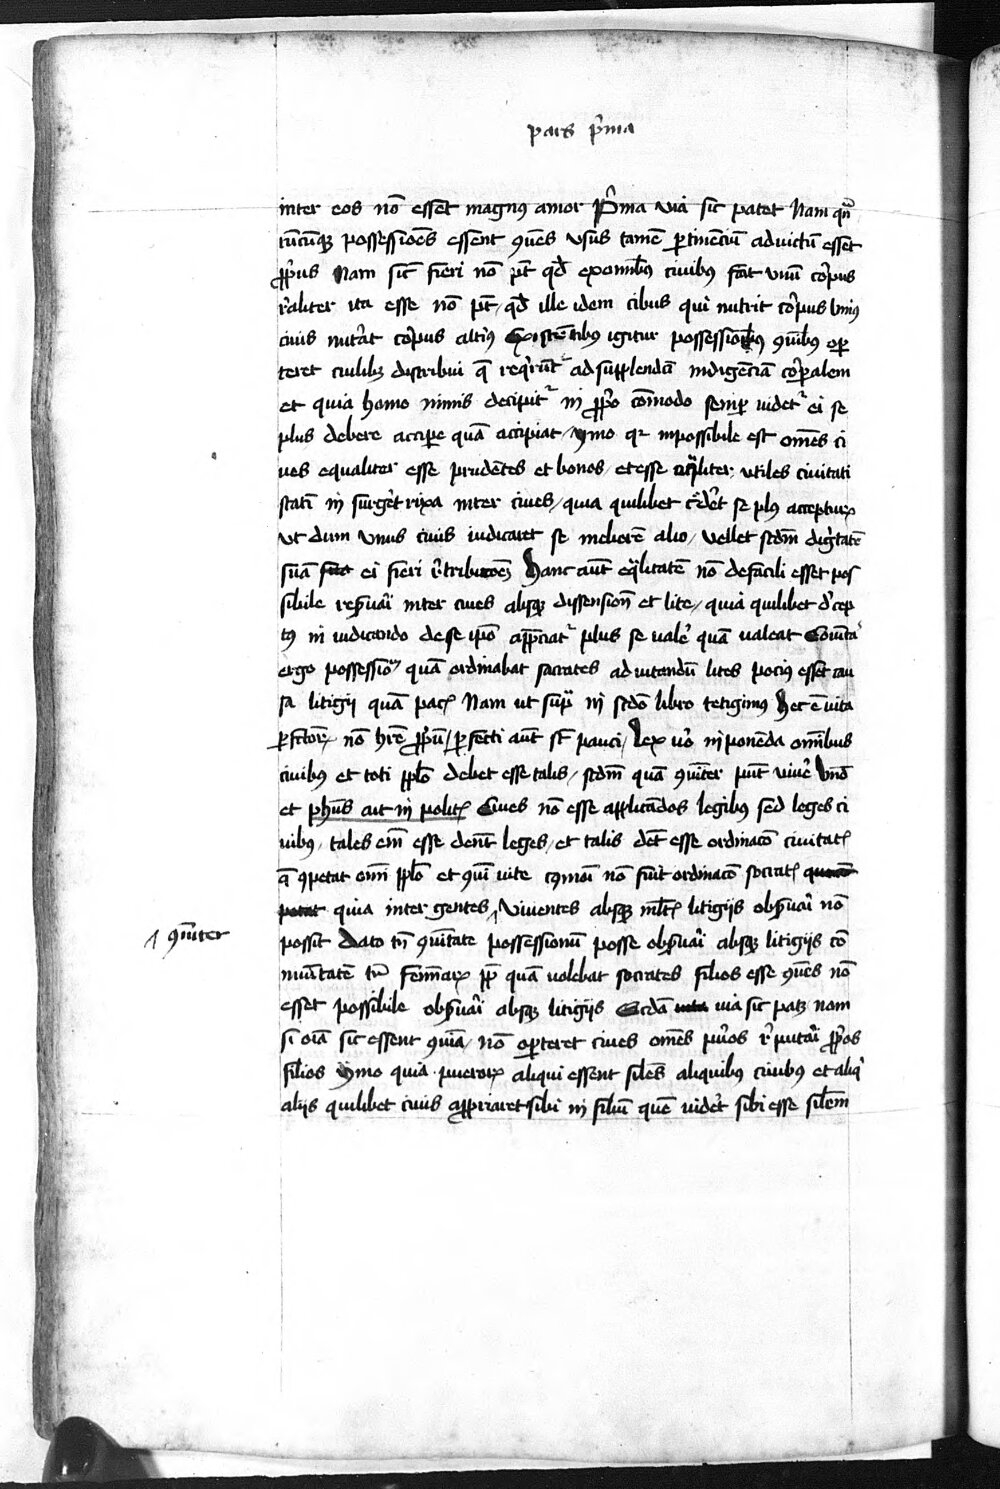 pars p̄ma
inter eos nō esset magnꝰ amor P̄ma via sic patet Nam qn̄
cūcunqꝫ possessiōes essent ꝯn̄es vsus tamē ꝑtinenciū ad victū esset
ꝓpͥus Nam sicͭ fieri nō pt̄ qd̓ ex om̄ibꝰ ciuibus fiat vnū corpus
r̄aliter ita esse nō pt̄ / qd̓ ille idem cibus qui nutrit corpus vniꝰ
ciuis nutͥat corpus altͥꝰ Existētibꝰ igitur possessionibꝰ ꝯn̄ibꝰ opor
teret ciuilibꝫ distribui q̄ reqͥrūt᷑ ad supplendā indigēciā corꝑalem
et quia homo nimis decipit᷑ in ꝓpͦ cōmodo semꝑ videt᷑ ei se
plus debere accipe quā accipiat / ymo qꝛ inpossibile est om̄es ci
ues equaliter esse prudētes et bonos / et esse eqͣliter vtiles ciuitati
statī in surget rixa inter ciues / quia quilibet cͤdet se plꝰ accepturꝝ
vt dum vnus ciuis iudicaret se meliorē alio / vellet scdm̄ digͥtatē
suā ei fieri rͤtribucōeꝫ Hanc aut̄ eqͣlitatē nō de facili esset pos
sibile reseruaͥi inter ciues absqꝫ dissension̄ et lite / quia quilibet dͤcep
tꝰ in iudicando de se ip̄o app̄ciat᷑ plus se valeͤ quā valeat Cōuīta᷑
ergo possessionꝝ quā ordinabat socrates ad vitandū lites pociꝰ esset cau
sa litigij quā pacꝭ Nam vt supͣ in scdō libro tetigimus Hec ē vita
ꝑfectorꝝ nō hr̄e ꝓpͥū / ꝑfecti aut̄ st̄ pauci / Lex vͦo inponēda om̄ibus
ciuibꝰ et toti ppl̄o debet esse talis / scdm̄ quā ꝯīter pn̄t viuͤe Vn̄d
et ph̄us ait in politꝭ Ciues nō esse applicādos legibus sed leges ci
uibꝰ / tales em̄ esse den̄t leges / et talis det̄ esse ordinacō ciuitatꝭ
q̄ ꝯpetat om̄i ppl̄o et ꝯūi vite cꝰmodi nō fuit ordinacō socratꝭ
quia inter gentes ꝯūiter viuentes absqꝫ ml̄tꝭ litigijs obseruaͥi nō
possit Dato tn̄ ꝯūitate possessionum posse obseruaͥi absqꝫ litigijs cō
mūitatē tn̄ feminarꝝ ꝓp̄ quā volebat socrates filios esse ꝯn̄es nō
esset possibile obseruaͥi absqꝫ litigijs Scdā via sic patꝫ nam
si oīa sic essent ꝯūia / nō oporteret ciues om̄es pūos rͤputaͥi ꝓpͥos
filios ymo quia puerorꝝ aliqui essent sil̄es aliquibꝰ ciuibꝰ et aliqͥ
alijs quilibet ciuis appropriaret sibi in filiū quē videt sibi esse sil̄em